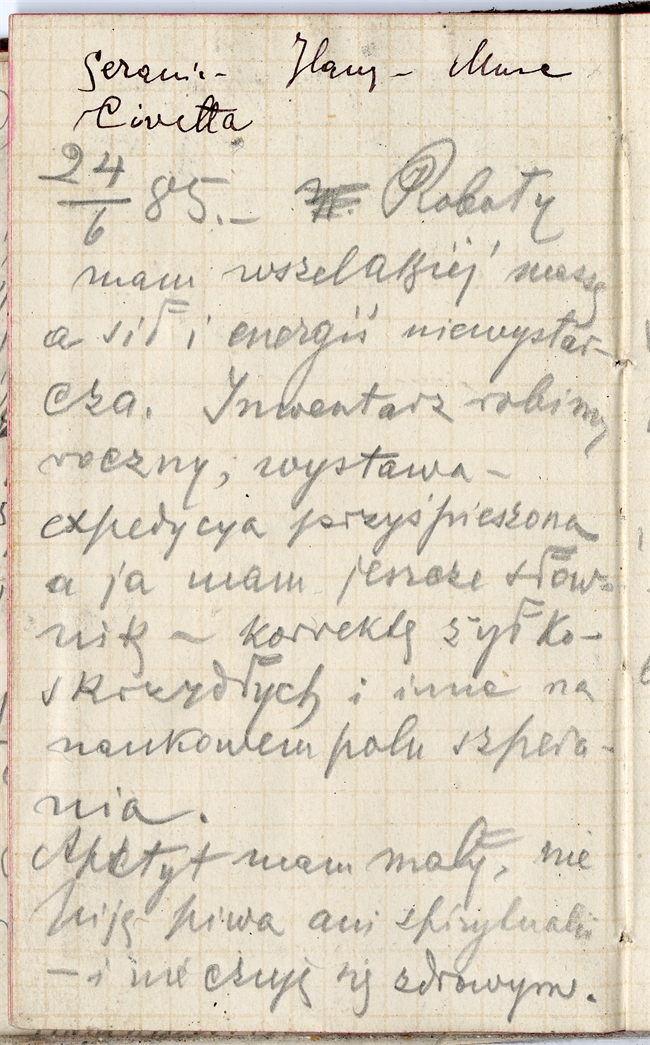 Gerani- - Muse
Civetta
24/6 85.- Roboty
mam wszelakiej masę
a sił i energii niewystar-
cza. Inwentarz robimy
roczny, wystawa -
expedycya przyśpieszona
a ja mam jeszcze słow-
nik - korrektę żyłko-
skrzydłych i inne na
naukowem polu szpera-
nia.
Apetyt mam mały, nie
piję piwa ani spirytualii
- i nie czuję się zdrowym.